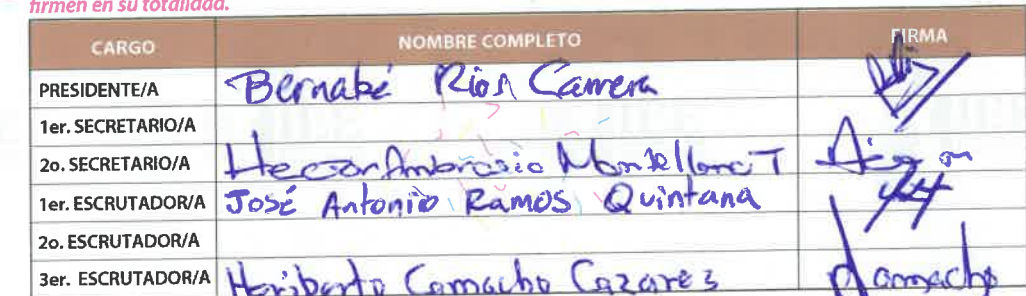 firmen en su totalidad.
CARGO NOMBRE COMPLETO FIRMA
PRESIDENTE/A Bernabé Ríos Carrera
1er. SECRETARIO/A
2o. SECRETARIO/A Hector Ambrosio Montellano T
1er. ESCRUTADOR/A José Antonio Ramos Quintana
2o. ESCRUTADOR/A
3er. ESCRUTADOR/A Heriberto Camacho Cazarez Camacho